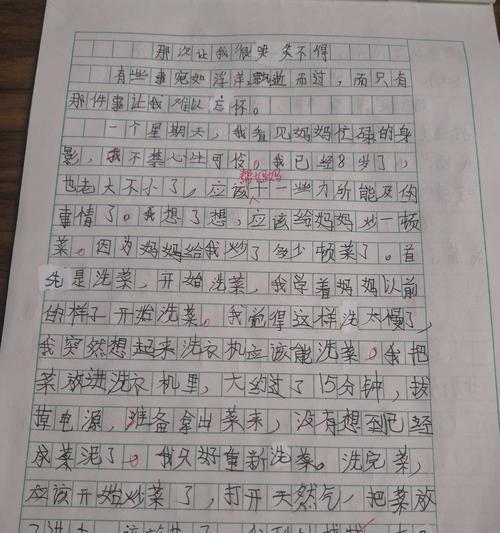 那次让我很哭笑不得
有些事宛如浮萍飘逝而过，而只有
那件事让我难以忘怀。
一个星期天，我看见妈妈忙碌的身
影，我不禁心生可佼。我已经8岁了，
也老大不小了，应该帮妈妈干一些力所能及的
事情了。我想了想，应该给妈妈炒一顿
菜。因为妈妈给我炒了多少顿菜了。首
先是洗菜，开始洗菜，我学着妈妈以前
的样子开始洗菜。我觉得这样洗太慢了，
我突然想起来洗衣机应该能洗菜。我把
菜放进洗衣机里，大约过了15分钟，拔
掉电源，准备拿出菜来，没有想到已经
尿菜泥了。我只好重新洗菜。洗完菜，
应该开始炒菜了，打开天然气，把菜放